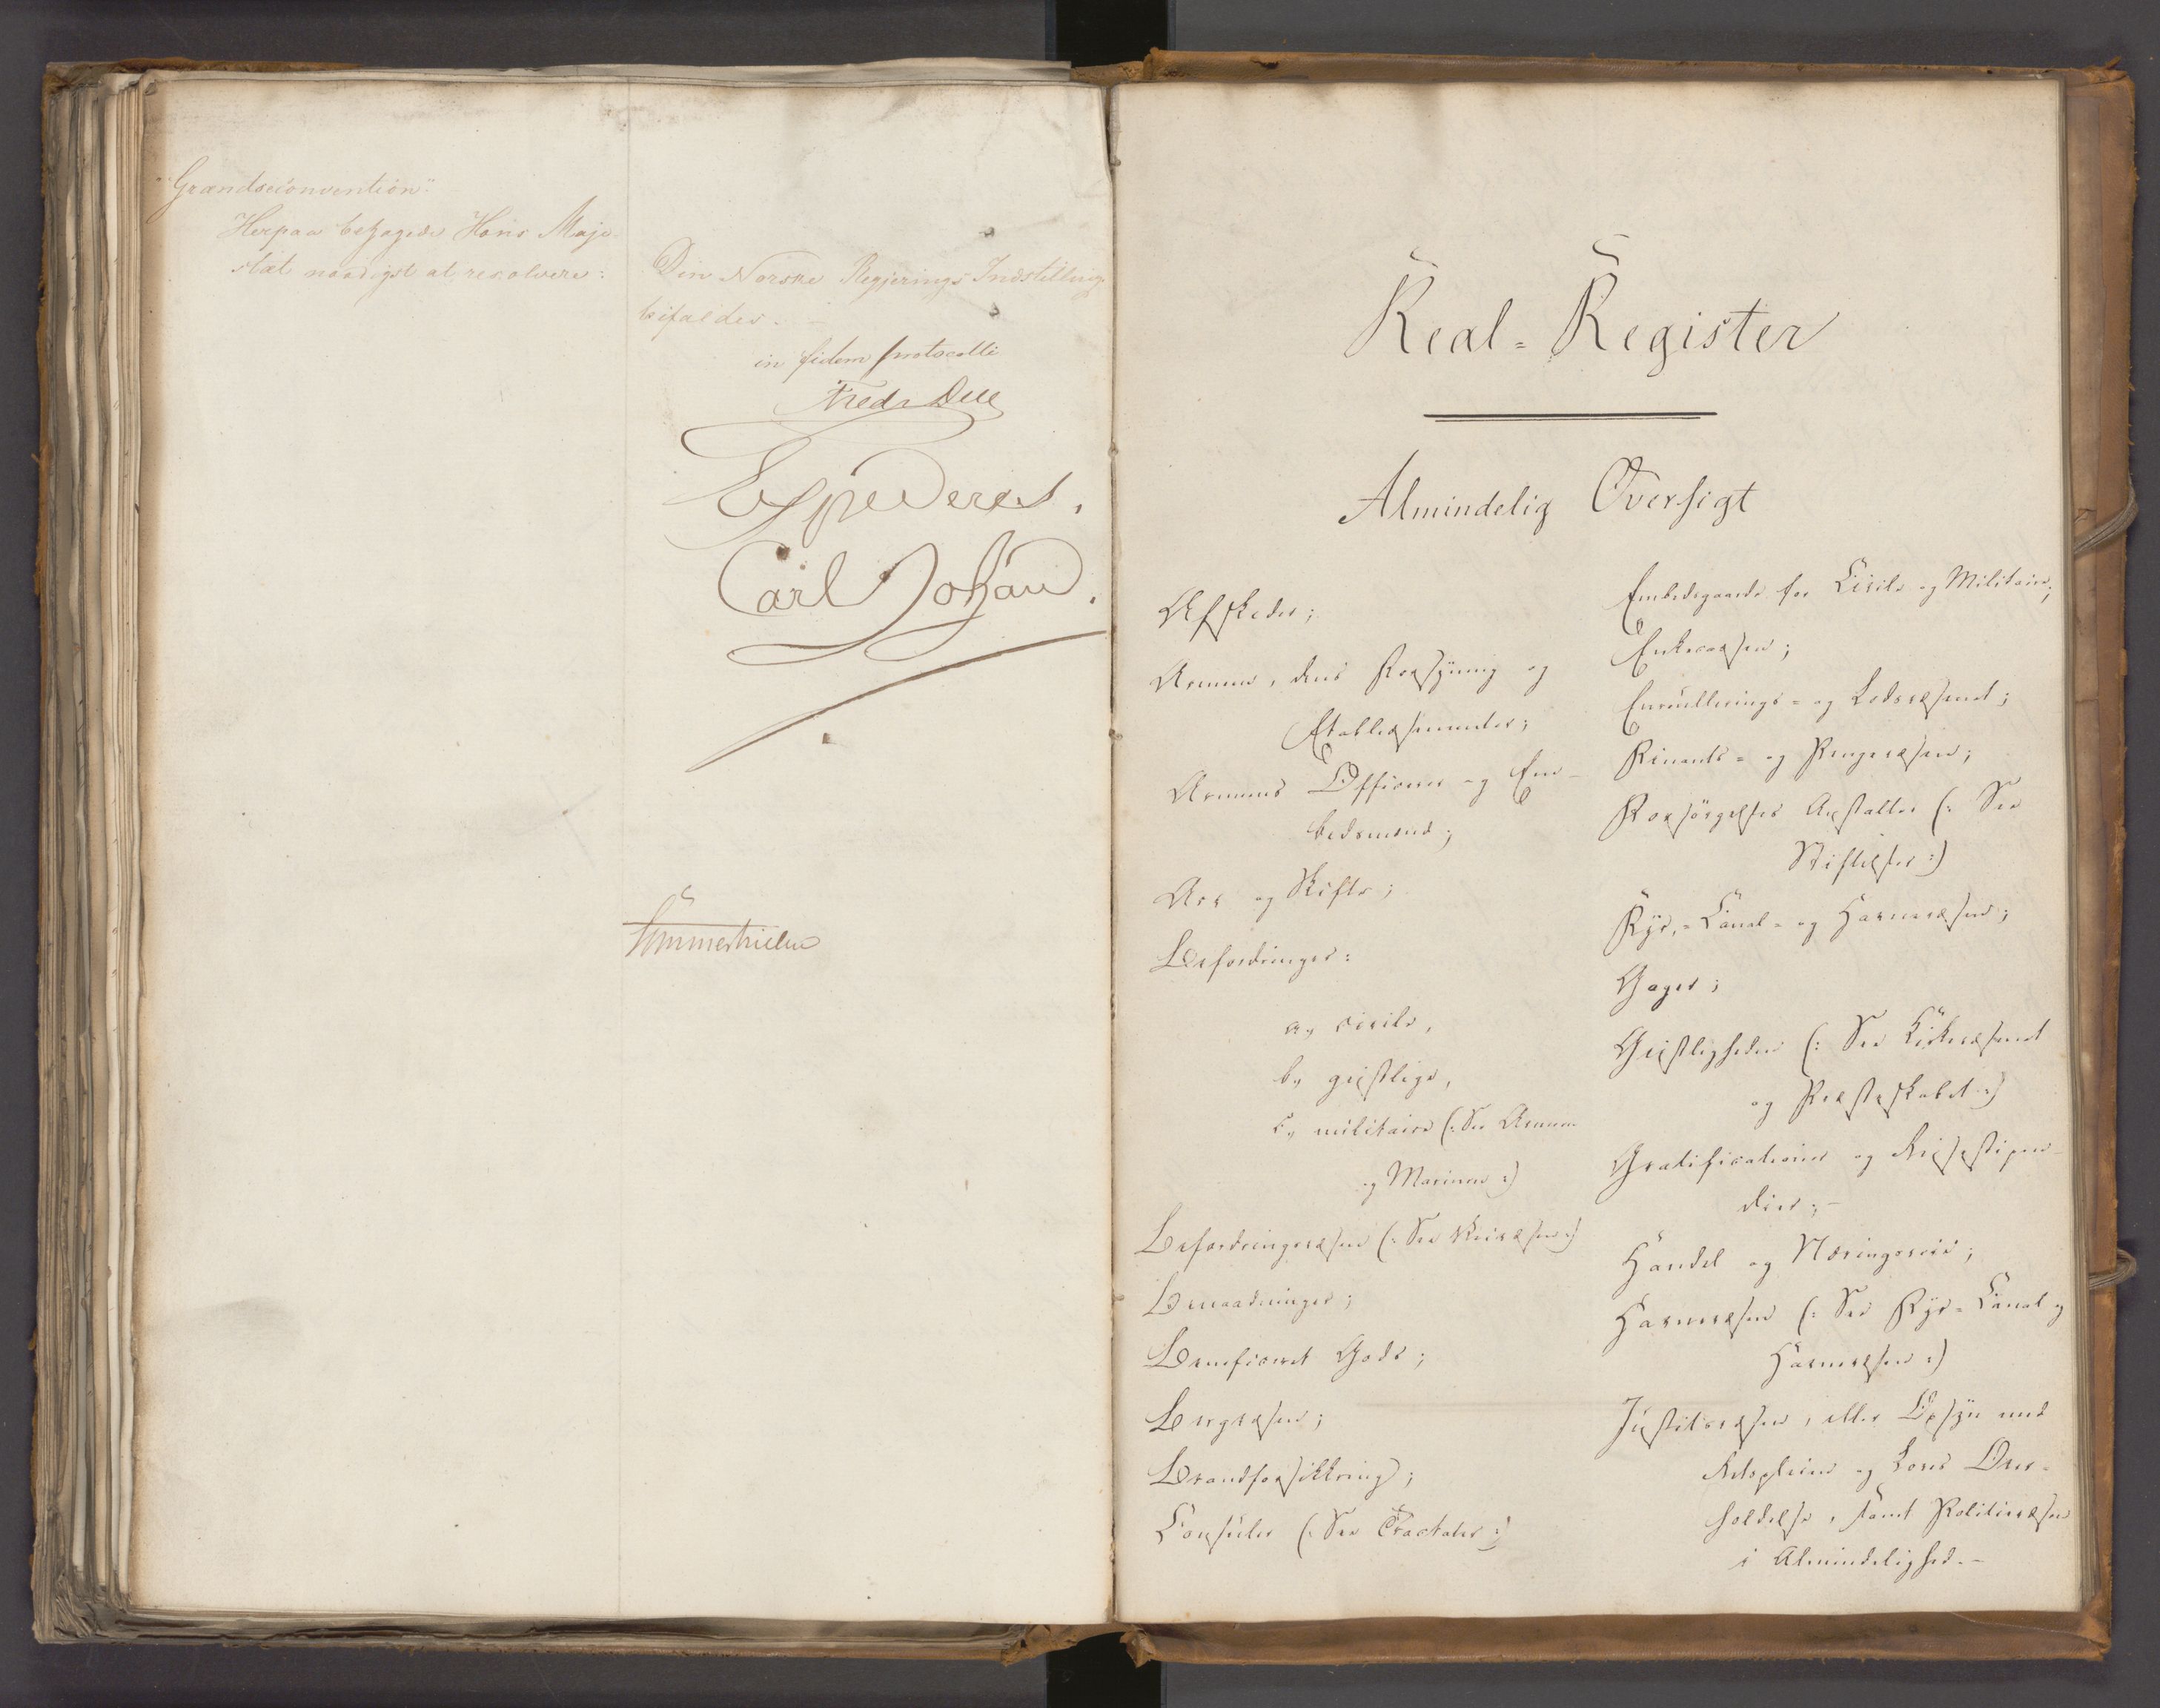 Grændseconvention."
Herpaa behagede Hans Maje-
stæt naadigst at resolvere:
Den Norske Regjerings Indstilling
bifaldes. –
in fidem protocolli
Fredr Due
Expederes.
Carl Johan.
Sömmerhielm
Real-Register
Almindelig Oversigt
Afskeder;
Armeen, dens Forsyning og
Etablissementer;
Armeens Officerer og Em-
bedsmænd;
Arv og Skifte;
Befordringer:
a, civile,
b, geistlige,
c, militaire (: See Armeen
og Marinen :)
Befordringsvæsen (: See Veivæsen :)
Benaadninger;
Beneficeret Gods;
Bergvæsen;
Brandforsikkring;
Consuler (: See Tractater :)
Embedsgaarde for Civile og Militaire;
Enkecassen;
Enroullerings- og Lodsvæsenet;
Finants- og Pengevæsen;
Forsörgelses Anstalter (: See
Stiftelser :)
Fyr,- Canal- og Havnevæsen;
Gager;
Geistligheden (: See Kirkevæsenet
og Præsteskabet :)
Gratificationer og Reisestipen-
dier; –
Handel og Næringsveie;
Havnevæsen (: See Fyr- Canal og
Havnevæsen :)
Justitsvæsen, eller Opsyn med
Retspleien og Lovens Over-
holdelse, samt Politievæsen
i Almindelighed. –